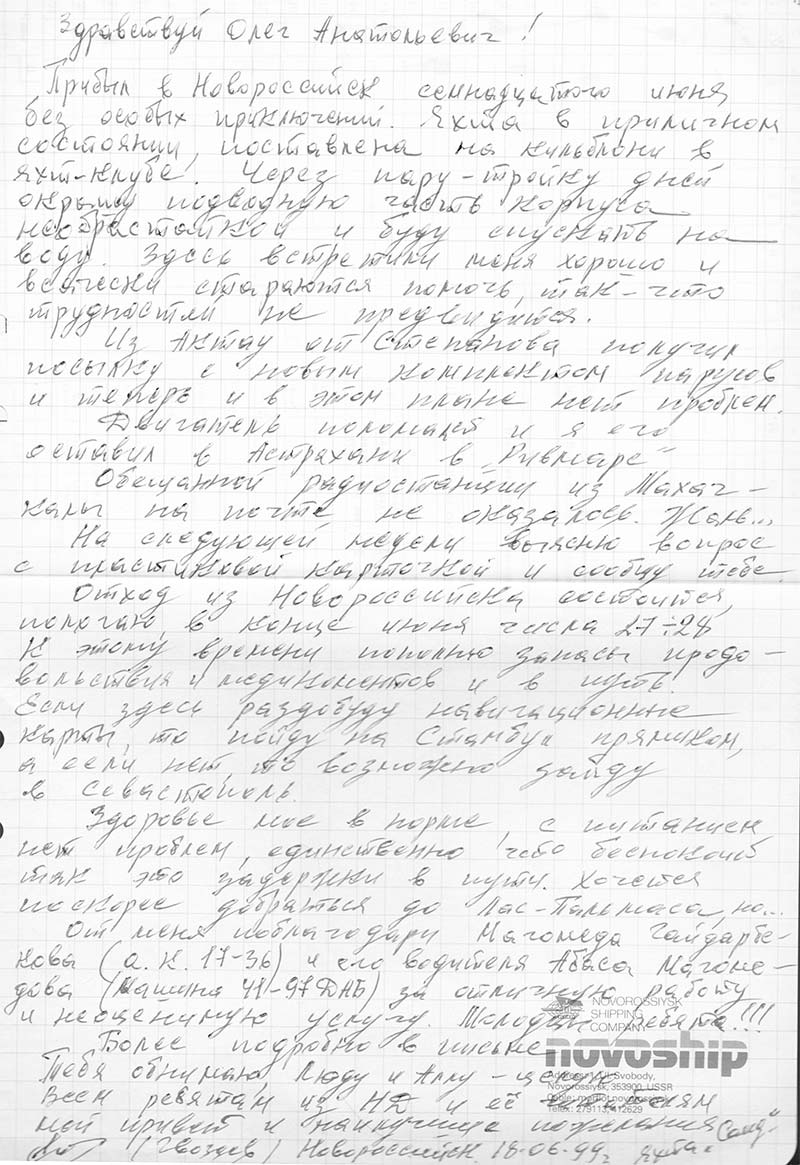 Здравствуй Олег Анатольевич!
Прибыл в Новороссийск семнадцатого июня
без особых приключений. Яхта в приличном
состоянии, поставлена на кильблоки в
яхт-клубе. Через пару-тройку дней
окрашу подводную часть корпуса
необрастайкой и буду спускать на
воду. Здесь встретили меня хорошо и
всячески стараются помочь, так-что
трудностей не предвидится.
Из Актау от Степанова получил
посылку с новым комплектом парусов
и теперь и в этом плане нет проблем.
Двигатель поломался и я его
оставил в Астрахани в „Ривмаре"
Обещанной радиостанции из Махач-
калы на почте не оказалось. Жаль...
На следующей недели выясню вопрос
с пластиковой карточкой и сообщу тебе.
Отход из Новороссийска состоится,
полагаю, в конце июня числа 27÷28
К этому времени пополню запасы продо-
вольствия и медикоментов и в путь.
Если здесь раздобуду навигационные
карты, то пойду на Стамбул прямиком,
а если нет, то возможно зайду
в Севастополь.
Здоровье мое в норме, с питанием
нет проблем, единственно что беспокоит
так это задержки в пути. Хочется
поскорее добраться до Лас-Пальмаса, но...
От меня поблагодари Магомеда Гайдарбе-
кова (а.к. 17-36) и его водителя Абаса Магоме-
дова (машина 41-97 ДНБ) за отличную работу
и неоценимую услугу. Молодцы ребята!!!
Более подробно в письме
Тебя обнимаю, Люду и Аллу - целую
Всем ребятам из НД и её
мой привет и наилучшие пожелания
(Гвоздев) Новороссийск 18-06-99г. яхта „Саид"
NOVOROSSIYSK
SHIPPING
COMPANY
novoship
Svobody,
Novorossiysk, 353900, USSR
Telex: 279113, 412629